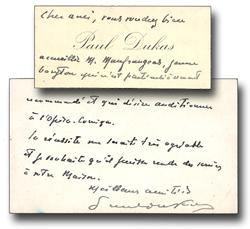 Cher ami, vous voudrez bien
accueillir M. Maufrangeas, jeune
Paul Dukas
baryton qui m'est particulièrement
recommandé et qui désire auditionner
à l'Opéra-Comique.
Sa réussite me serait très agréable
et je souhaite qu'il puisse rendre des services
à votre Maison.
Meilleures amitiés
Paul Dukas